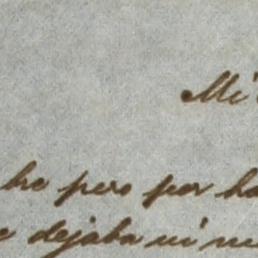 Mi
he pero por ha
e dejaba ni